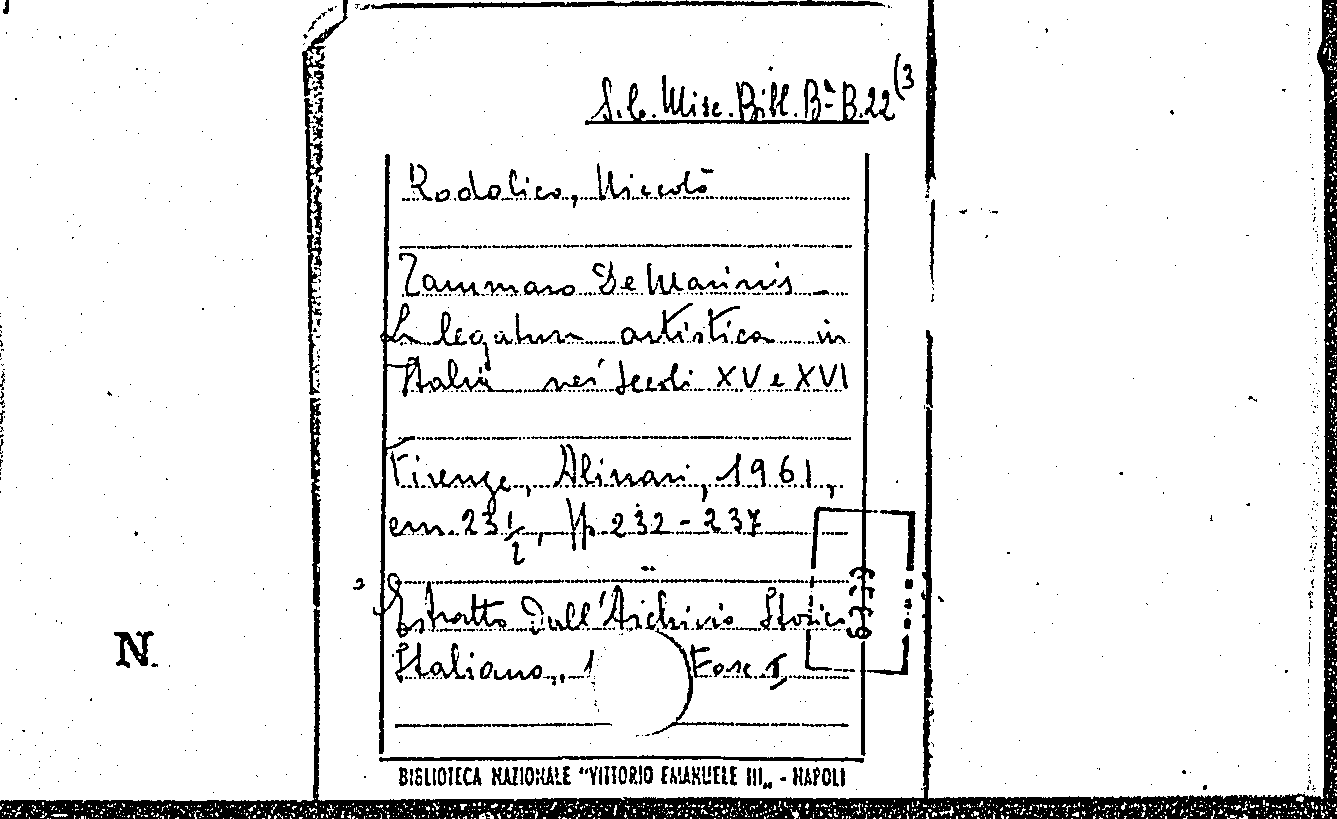 S.C. Misc. Bibl. Bª B.22(3
Rodolico, Niccolò
Tammaro De Marinis _
La legatura artistica in
Italia nei secoli XV e XVI
Firenze, Alinari, 1961,
cm. 23 1/2, pp. 232-237
Estratto dall'Archivio Storico
Italiano,, 1 Fasc I,
N.
BIBLIOTECA NAZIONALE "VITTORIO EMANUELE III„ - NAPOLI